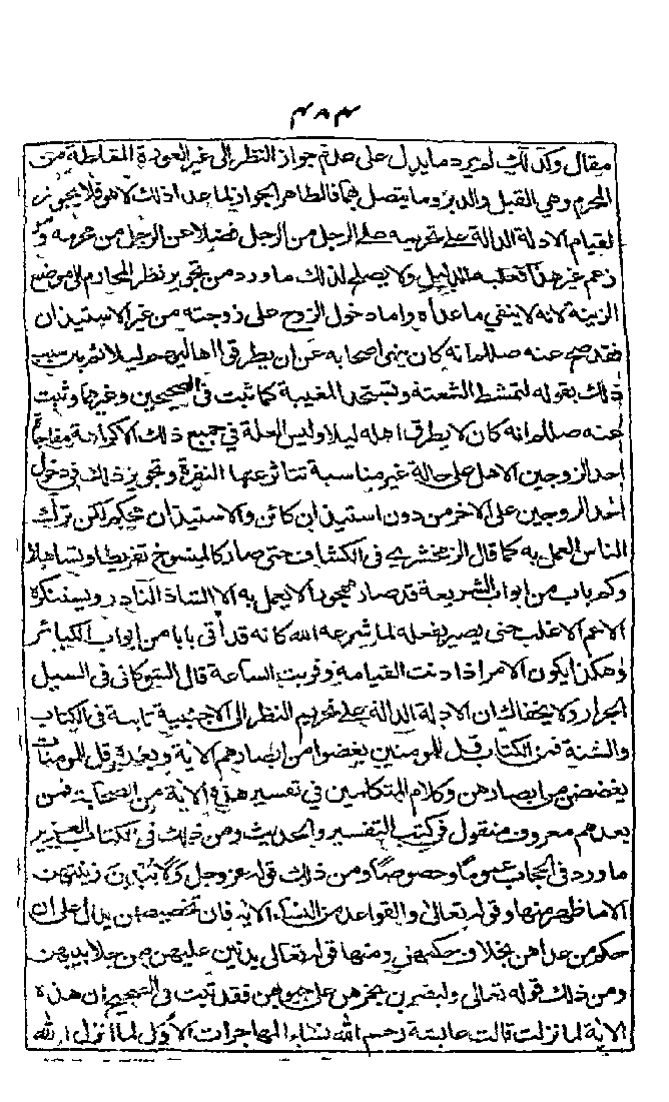 ٤٧٤
مقال وكذلك لم يرد ما يدل على عدم جواز النظر الى غير العورة المغلظة من
المحرم وهي القبل والدبر وما يتصل بهما فالظاهر الجواز لما عدا ذلك لا هو فلا يجوز
لقيام الادلة الدالة على تحريمه على الرجل من الرجل فضلا عن الرجل من محرمه و
زعم غير هذا فعليه الدليل ولا يصلح لذلك ما ورد من تجويز نظر المحارم الى موضع
الزينة لانه لا ينفي ما عداه واما دخول الزوج على زوجته من غير الاستيذان
فقد صح عنه صللم انه كان ينهى اصحابه عن ان يطرقوا اهاليهم ليلا
ذلك بقوله لتمتشط الشعثة وتستحد المغيبة كما ثبت في الصحيحين وغيرهما وثبت
عنه صللم انه كان لا يطرق اهله ليلا وليس العلة في جميع ذلك الا كراهة مفاجاة
احد الزوجين الاهل على حالة غير مناسبة تتاثر عنها النفرة وتجويز ذلك في دخول
احد الزوجين على الآخر من دون استيذان كائن والاستيذان محكم لكن ترك
الناس العمل به كما قال الزمخشري في الكشاف حتى صار كالمنسوخ تفريطا وتساهلا
وكم باب من ابواب الشريعة قد صار مهجورا لا يعمل به الا الشاذ النادر ويستنكره
الاعم الاغلب حتى يصير بفعله لما شرعه الله كانه قد اتى بابا من ابواب الكبائر
وهكذا يكون الامر اذا دنت القيامة وقربت الساعة قال الشوكاني في السيل
الجرار ولا يخفاك ان الادلة الدالة على تحريم النظر الى الاجنبية ثابتة في الكتاب
والسنة فمن الكتاب قل للمومنين يغضوا من ابصارهم الآية وبعدها وقل للمومنات
يغضضن من ابصارهن وكلام المتكلمين في تفسير هذه الآية من الصحابة فمن
بعدهم معروف منقول في كتب التفسير والحديث ومن ذلك في الكتاب العزيز
ما ورد في الحجاب عموما وخصوصا ومن ذلك قوله عز وجل ولا يبدين زينتهن
الا ما ظهر منها وقوله تعالى والقواعد من النساء الآية فان تخصيصهن يدل على ان
حكم من عداهن بخلاف حكمهن ومنها قوله تعالى يدنين عليهن من جلابيبهن
ومن ذلك قوله تعالى وليضربن بخمرهن على جيوبهن فقد ثبت في الصحيح ان هذه
الآية لما نزلت قالت عايشة رحم الله نساء المهاجرات الأول لما انزل الله